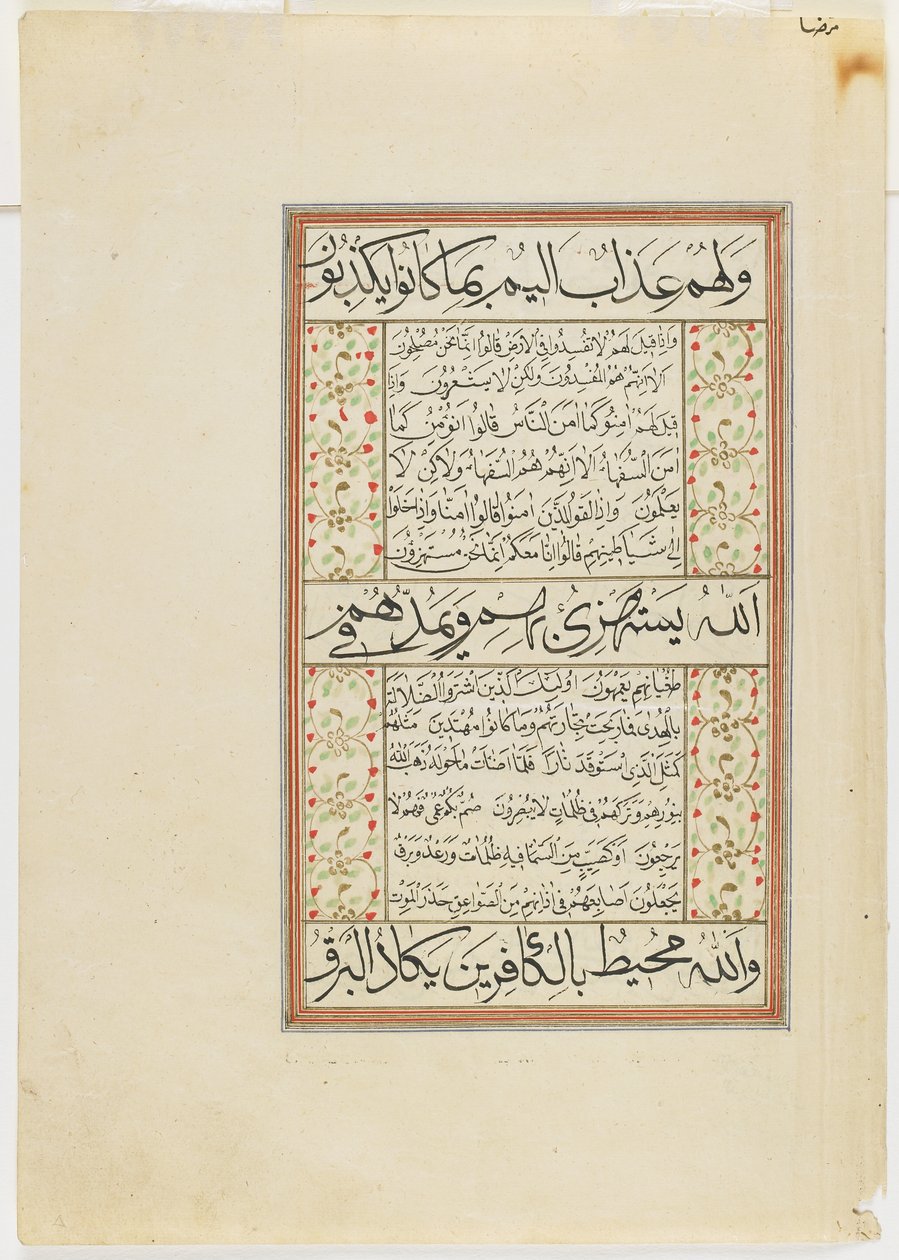 مرضا
وَلَهُمْ عَذَابٌ اليم بِمَا كَانُوا يَكْذِبُونَ
وَاِذَا قِيلَ لَهُمْ لَا تُفْسِدُوا فِي الْاَرْضِ قَالُوا اِنَّمَا نَحْنُ مُصْلِحُونَ
اَلَا اِنَّهُمْ هُمُ الْمُفْسِدُونَ وَلٰكِنْ لَا يَشْعُرُونَ وَاِذَا
قِيلَ لَهُمْ اٰمِنُو كَمَا اٰمَنَ الْنَّاسُ قَالُوا اَنُؤْمِنُ كَمَا
اٰمَنَ السُّفَهَاءُ اَلَا اِنَّهُمْ هُمُ السُّفَهَاءُ وَلَاكِنْ لَا
يَعْلَمُونَ وَاِذَا لَقُو الَّذِينَ اٰمَنُوا قَالُوا اٰمَنَّا وَاِذَا خَلَوْا
اِلٰى شَيَاطِينِهِمْ قَالُوا اِنَّا مَعَكُمْ اِنَّمَا نَحْنُ مُسْتَهْزِؤُنَ
اَللّٰهُ يَسْتَهْزِئُ بِهِمْ وَيَمُدُّهُمْ فِي
طُغْيَانِهِمْ يَعْمَهُونَ اُولٰئِكَ الَّذِينَ اشْتَرَوُا الْضَّلَالَةَ
بِالْهُدٰى فَمَا رَبِحَتْ تِجَارَتُهُمْ وَمَا كَانُوا مُهْتَدِينَ مَثَلُهُمْ
كَمَثَلِ الَّذِي اسْتَوْقَدَ نَارًا فَلَمَّا اَضَائَتْ مَا حَوْلَهُ ذَهَبَ اللّٰهُ
بِنُورِهِمْ وَتَرَكَهُمْ فِي ظُلُمَاتٍ لَا يُبْصِرُونَ صُمٌّ بُكْمٌ عُمْىٌ فَهُمْ لَا
يَرْجِعُونَ اَوْ كَصَيِّبٍ مِنَ الْسَّمَاءِ فِيهِ ظُلُمَاتٌ وَرَعْدٌ وَبَرْقٌ
يَجْعَلُونَ اَصَابِعَهُمْ فِي اٰذَانِهِمْ مِنَ الْصَّوَاعِقِ حَذَرَ الْمَوْتِ
وَاللّٰهُ مُحِيطٌ بِالْكَافِرِينَ يَكَادُ الْبَرْقُ